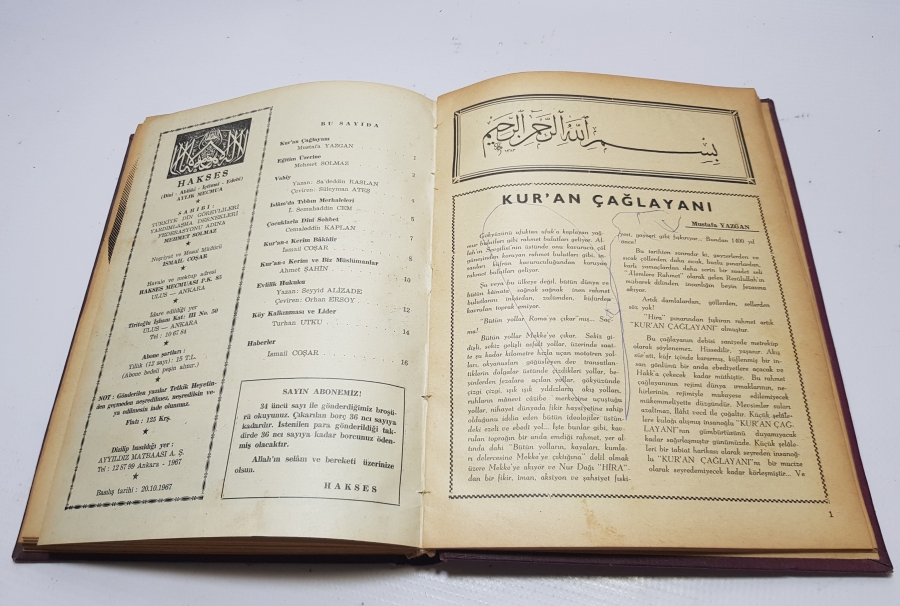 HAKSES
(Dinî - Ahlâkî - İçtimaî - Edebî)
AYLIK MECMUA
SAHİBİ :
TÜRKİYE DİN GÖREVLİLERİ
YARDIMLAŞMA DERNEKLERİ
FEDERASYONU ADINA
MEHMET SOLMAZ
Neşriyat ve Mesul Müdürü
İSMAİL COŞAR
Havale ve mektup adresi
HAKSES MECMUASI P.K. 85
ULUS — ANKARA
İdare edildiği yer
Tiritoğlu İşhanı Kat: III No. 30
ULUS — ANKARA
Tel : 10 67 84
Abone şartları :
Yıllık (12 sayı): 15 T.L.
(Abone bedeli peşin alınır.)
NOT : Gönderilen yazılar Tetkik Heyetin-
den geçmeden neşredilmez, neşredilsin ve-
ya edilmesin iade olunmaz.
Fiatı : 125 Krş.
Dizilip basıldığı yer :
AYYILDIZ MATBAASI A. Ş.
Tel : 12 57 99 Ankara - 1967
Basılış tarihi : 20.10.1967
BU SAYIDA
Kur'an Çağlayanı
Mustafa YAZGAN 1
Eğitim Üzerine
Mehmet SOLMAZ 2
Vahiy
Yazan: Sa'deddin RASLAN
Çeviren: Süleyman ATEŞ 4
İslâm'da Tıbbın Merhaleleri
İ. Semahaddin CEM 5
Çocuklarla Dinî Sohbet
Cemaleddin KAPLAN 7
Kur'an-ı Kerim Bâkidir
İsmail COŞAR 8
Kur'an-ı Kerim ve Biz Müslümanlar
Ahmet ŞAHİN 10
Evlilik Hukuku
Yazan: Seyyid ALİZADE
Çeviren: Orhan ERSOY 12
Köy Kalkınması ve Lider
Turhan UTKU 14
Haberler
İsmail COŞAR 16
SAYIN ABONEMİZ!
34 üncü sayı ile gönderdiğimiz broşü-
rü okuyunuz. Çıkarılan borç 36 ncı sayıya
kadardır. İstenilen para gönderildiği tak-
dirde 36 ncı sayıya kadar borcunuz öden-
miş olacaktır.
Allah'ın selâm ve bereketi üzerinize
olsun.
HAKSES
بسم الله الرحمن الرحيم
KUR'AN ÇAĞLAYANI
Mustafa YAZGAN
Gökyüzünü ufuktan ufuk'a kaplıyan yağ-
mur bulutları gibi rahmet bulutları geliyor. Al-
lah'ın Sevgilisi'nin üstünde onu kavurucu çöl
kumundan koruyan rahmet bulutları gibi, in-
sanları küfrün kavuruculuğundan koruyan
rahmet bulutları geliyor.
Şu veya bu ülkeye değil, bütün dünya ve
bütün kâinata, sağnak sağnak iman
bulutlarını inkârdan, zulümden, küfürden
kavrulan toprak emiyor.
"Bütün yollar Roma'ya çıkar"mış. Saç-
ma!
Bütün yollar Mekke'ye çıkar. Sekiz gi-
dişli, sekiz gelişli asfalt yollar, üzerinde saat-
ta şu kadar kilometre hızla uçan motören yol-
ları, okyanusları göğüsleyen dev transatlan-
tiklerin dalgalar üstünde çizdikleri yollar, be-
yinlerden fezalara açılan yollar, gökyüzünde
çizgi çizgi, ışık ışık yıldızlarla akan yollar,
ruhların mânevî câzibe merkezine uçuştuğu
yollar, nihayet dünyada fikir haysiyetine sahip
olduğunu iddia eden bütün ideolojiler üstün-
deki ezelî ve ebedî yol... İşte bunlar gibi, kav-
rulan toprağın bir anda emdiği rahmet, yer al-
tında dahi "Bütün yolların, kayaları, kumla-
rı delercesine Mekke'ye çıktığına" delil olmak
üzere Mekke'ye akıyor ve Nur Dağı "HİRA"
dan bir fikir, iman, aksiyon ve şahsiyet fışkı-
yor, gayseri gibi fışkırıyor... Bundan 1400 yıl
önce!
Bu tarihten sonradır ki, gayzerlerden ve
sıcak çöllerden daha sıcak, buzlu pınarlardan,
karlı yamaçlardan daha serin bir saadet seli
"Âlemlere Rahmet" olarak gelen Resûlullah'ın
mübarek dilinden insanlığın beyin fezasına
akıyor.
Artık damlalardan, göllerden, sellerden
söz yok!
"Hira" pınarından fışkıran rahmet artık
"KUR'AN ÇAĞLAYANI" olmuştur.
Bu çağlayanın debisi saniyede metreküp
olarak söylenemez. Hissedilir, yaşanır. Akış
sür'ati, küfr içinde kararmış, küflenmiş bir in-
san gönlünü bir anda ebediyetlere açacak ve
Hakk'a çekecek kadar müthiştir. Bu rahmet
çağlayanının rejimi dünya ırmaklarının, ne-
hirlerinin rejimiyle mukayese edilemiyecek
mükemmeliyette düzgündür. Mevsimler suları
azaltmaz, İlâhî vecd ile çoğaltır. Küçük şelâle-
lere kulağı alışmış insanoğlu "KUR'AN ÇAĞ-
LAYANI"nın gümbürtüsünü duyamıyacak
kadar sağırlaşmıştır günümüzde. Küçük şelâle-
leri bir tabiat harikası olarak seyreden insanoğ-
lu "KUR'AN ÇAĞLAYANI"nı bir mucize
olarak seyredemiyecek kadar körleşmiştir... Ve
1